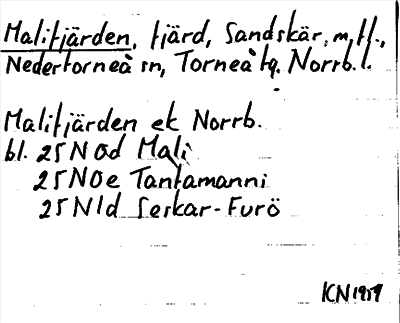 Malifjärden, fjärd, Sandskär, m, fl.,
Nedertorneå sn, Torneå tg. Norrb. l.
Malifjärden ek Norrb.
bl. 25 N 0d Mali
25 N 0e Tantamanni
25 N 1d Seskar-Furö
KN 1959